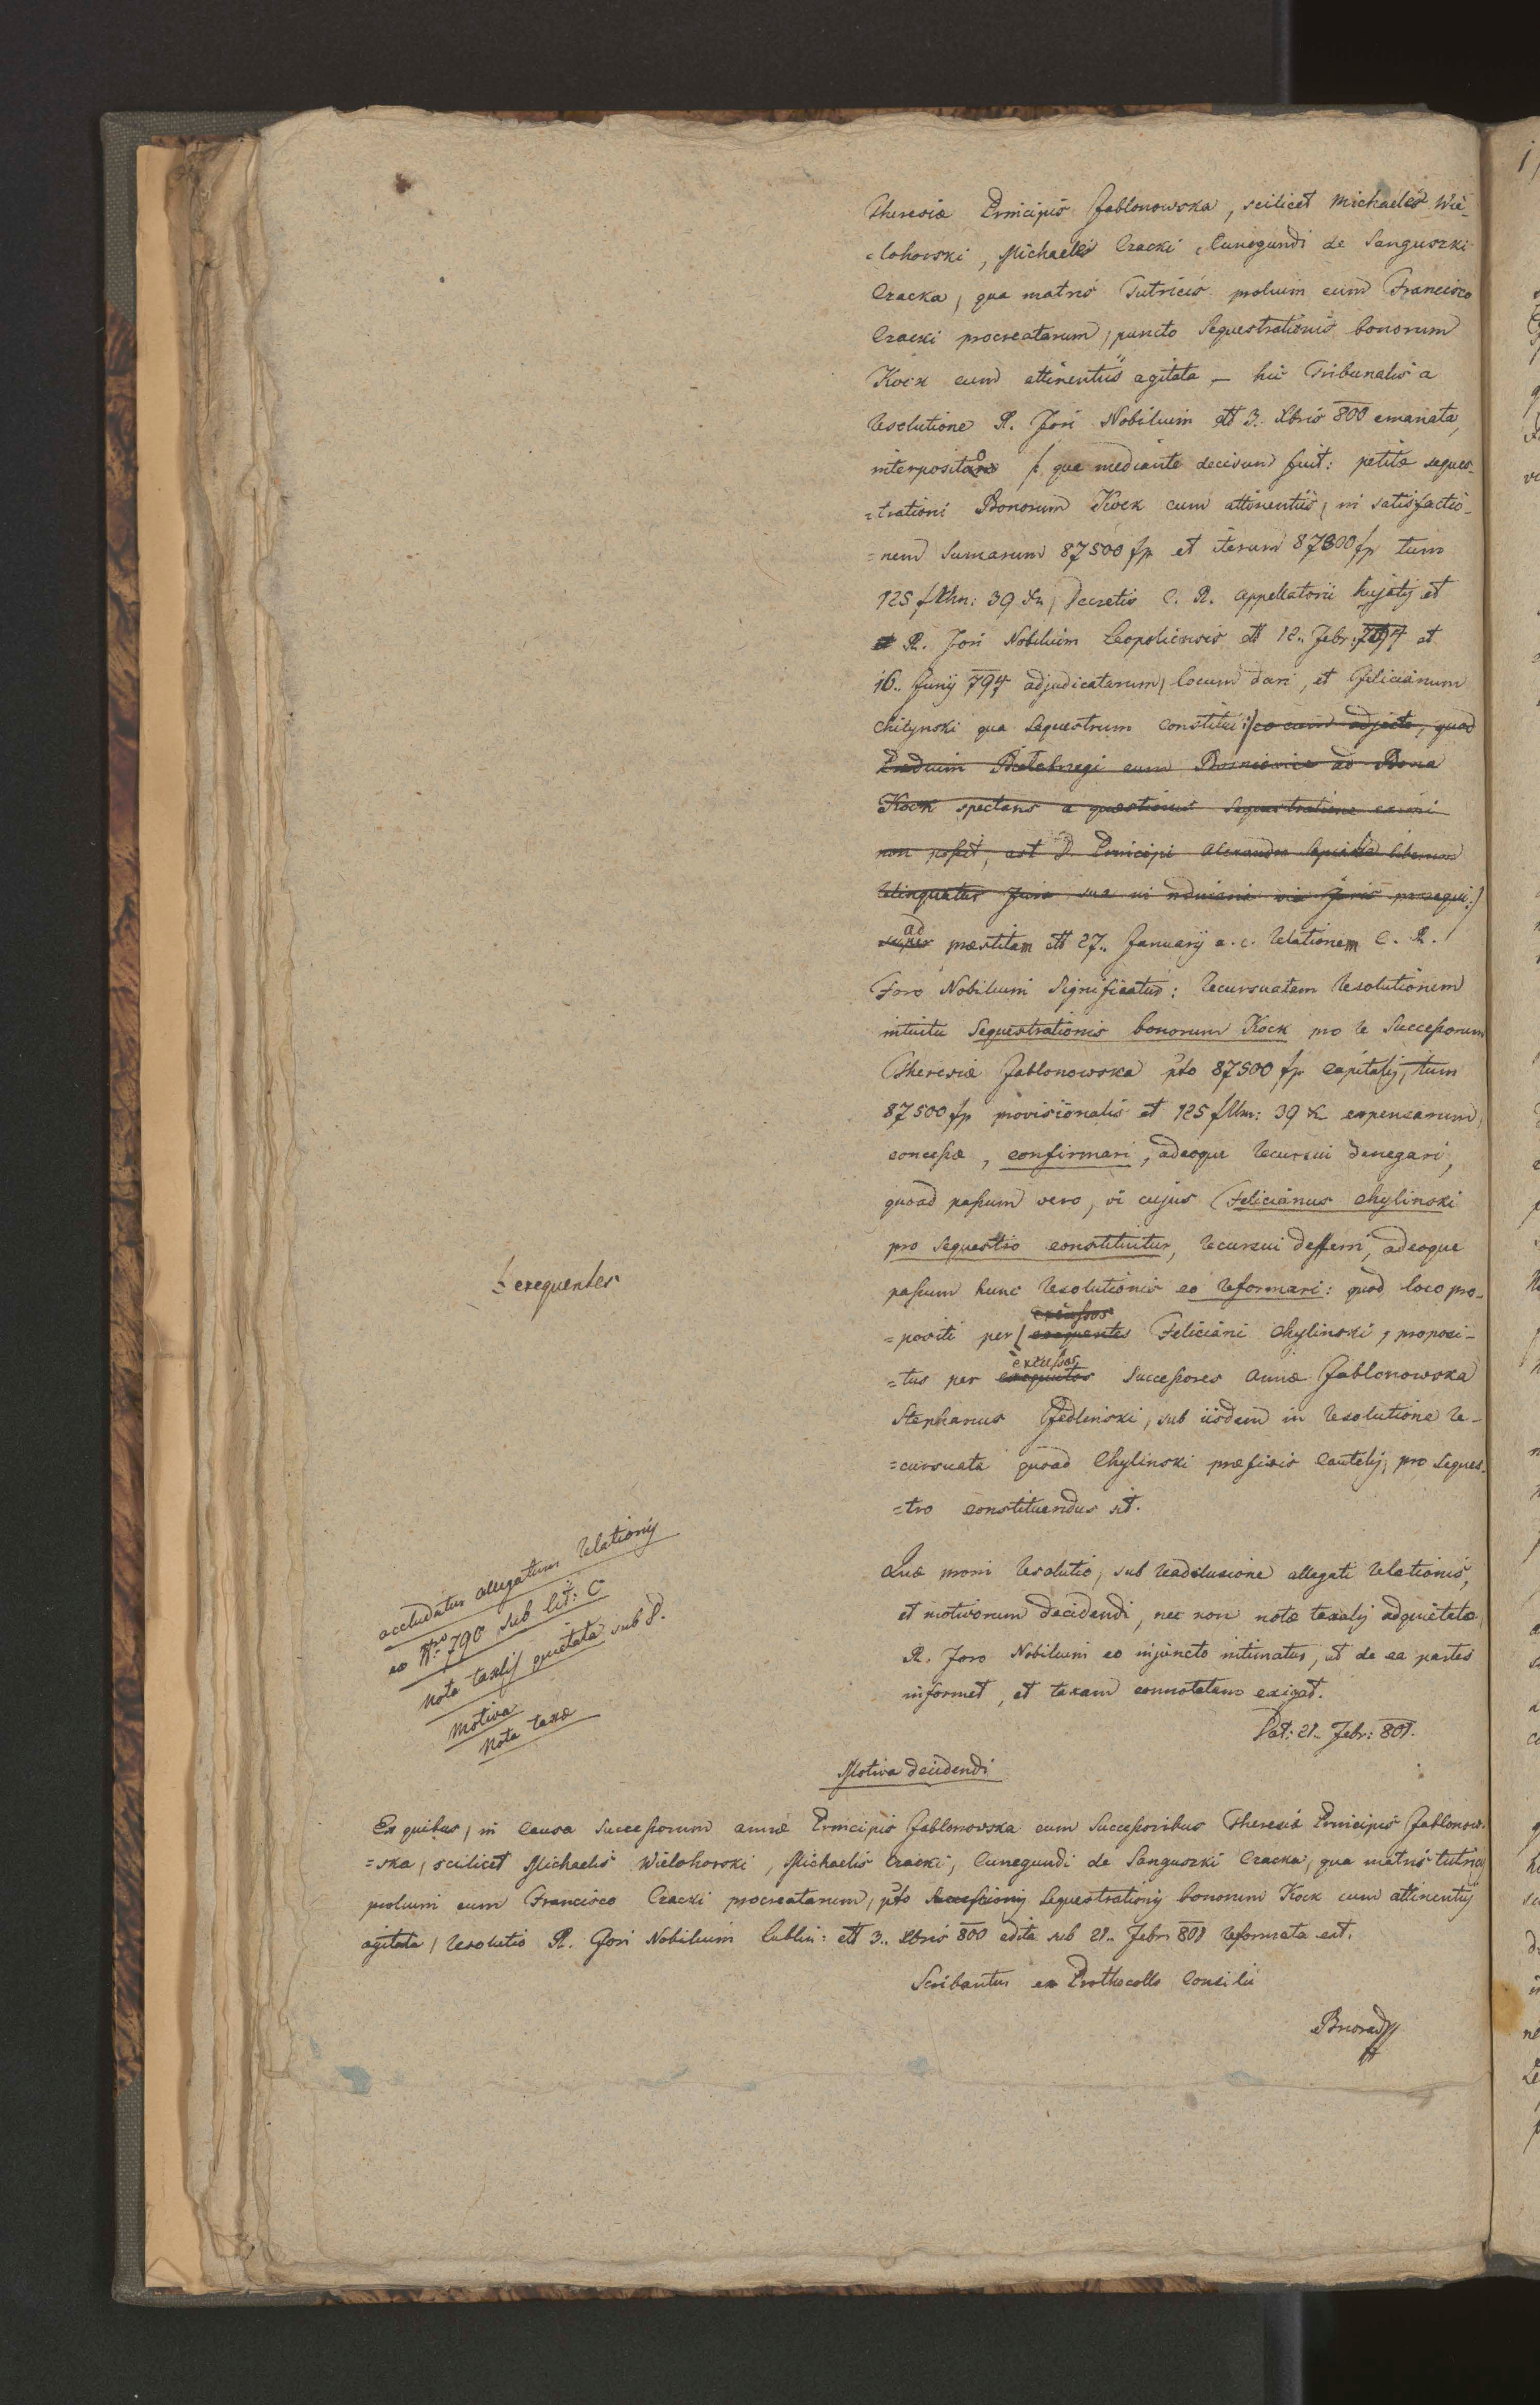 Theresiæ Principis Jablonowska, scilicet Michaelis Wie-
=lohorski, Michaelis Czacki, Cunegundi de Sanguszki
Czacka, qua matris Tutricis prolium cum Francisco
Czacki procreatarum, puncto Sequestrationis bonorum
Kock cum attinentiis agitata – hic Tribunalis a
Resolutione R. Fori Nobilium dtt 3. Xbris 800 emanata,
interposito /: qua mediante decisum fuit: petitæ seques-
=trationi Bonorum Kock cum attinentiis, in satisfactio-
=nem Summarum 87500 fp et iterum 87500 fp tum
125 f Rhn: 39 Xr, Decretis C. R. Appellatorii hujatis et
R. Fori Nobilium Leopoliensis dtt 12.. Febr: 794 et
16.. Junij 794 adjudicatarum, locum dari, et Felicianum
Chilynski qua Sequestrum constitui :/ eo cum adjecto, quod
Prædium Białobrzegi cum ad Bona
Kock spectans a quæstionis Sequestratione eximi
non possit, ast D. Principi Alexandro Sapieha liberum
relinquatur Jura sua in ordinaria via Juris prosequi :/
ad
super præstitam dtt 27.. Januarij a. c. Relationem C. R.
Foro Nobilium Significatur: Recursuatam Resolutionem
intuitu Sequestrationis bonorum Kock pro re Successorum
Theresiæ Jablonowska pto 87500 fp Capitalis, tum
87500 fp provisionalis et 125 f Rhn: 39 X expensarum
concessæ, confirmari, adeoque Recursui denegari,
quoad passum vero, vi cujus Felicianus Chylinski
pro Sequestro constituitur, recursui defferri, adeoque
passum hunc Resolutionis eo reformari: quod loco pro-
excussos
=positi per exequentes Feliciani Chylinski, proposi-
excussos
=tus per exequentes Successores Annæ Jablonowska
Stephanus Jedlinski, sub iisdem in Resolutione Re-
=cursuata quoad Chylinski præfixis Cautelis, pro Seques-
=tro constituendus sit.
exequentes
Quæ proni Resolutio, sub Readclusione allegati Relationis,
et motivorum decidendi, nec non notæ taxalis adquietatæ,
R. Foro Nobilium eo injuncto intimatur, ut de ea partes
informet, et taxam connotatam exigat.
Dat: 21.. Febr: 801.
accludatur allegatum Relationis
ex Nro 790 sub lit: C
Nota taxlis quietata sub S.
Motiva
Nota taxæ
Motiva decidendi
Ex quibus, in Causa Successorum Annæ Principis Jablonowska cum Successoribus Theresiæ Principis Jablonow-
=ska, scilicet Michaelis Wielohorski, Michaelis Czacki, Cunegundi de Sanguszki Czacka, qua matris tutricis
prolium cum Francisco Czacki procreatarum, pto Successionis Sequestrationis bonorum Kock cum attinentijs
agitata, Resolutio R. Fori Nobilium Lublin: dtt 3.. Xbris 800 edita sub 21.. Febr: 801 reformata est.
Scribantur ex Prothocollo Consilii